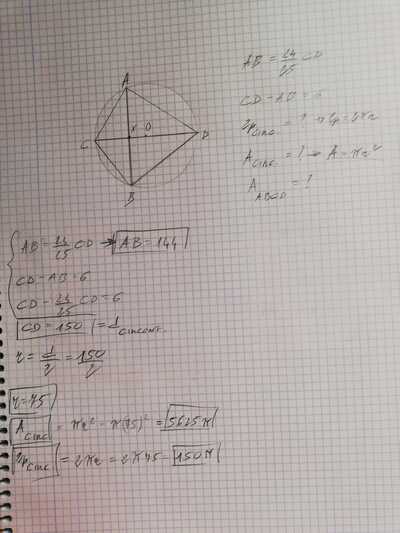 A
C
K
O
D
B
AB = 24/25 CD
CD - AB = 6
2p circ. = ? → 2p = 2πr
A circ. = ? → A = πr²
A ABCD = ?
AB = 24/25 CD → AB = 144
CD - AB = 6
CD - 24/25 CD = 6
CD = 150 = d circonf.
r = d/2 = 150/2
r = 75
A circ = πr² = π(75)² = 5625π
2p circ = 2πr = 2π75 = 150π